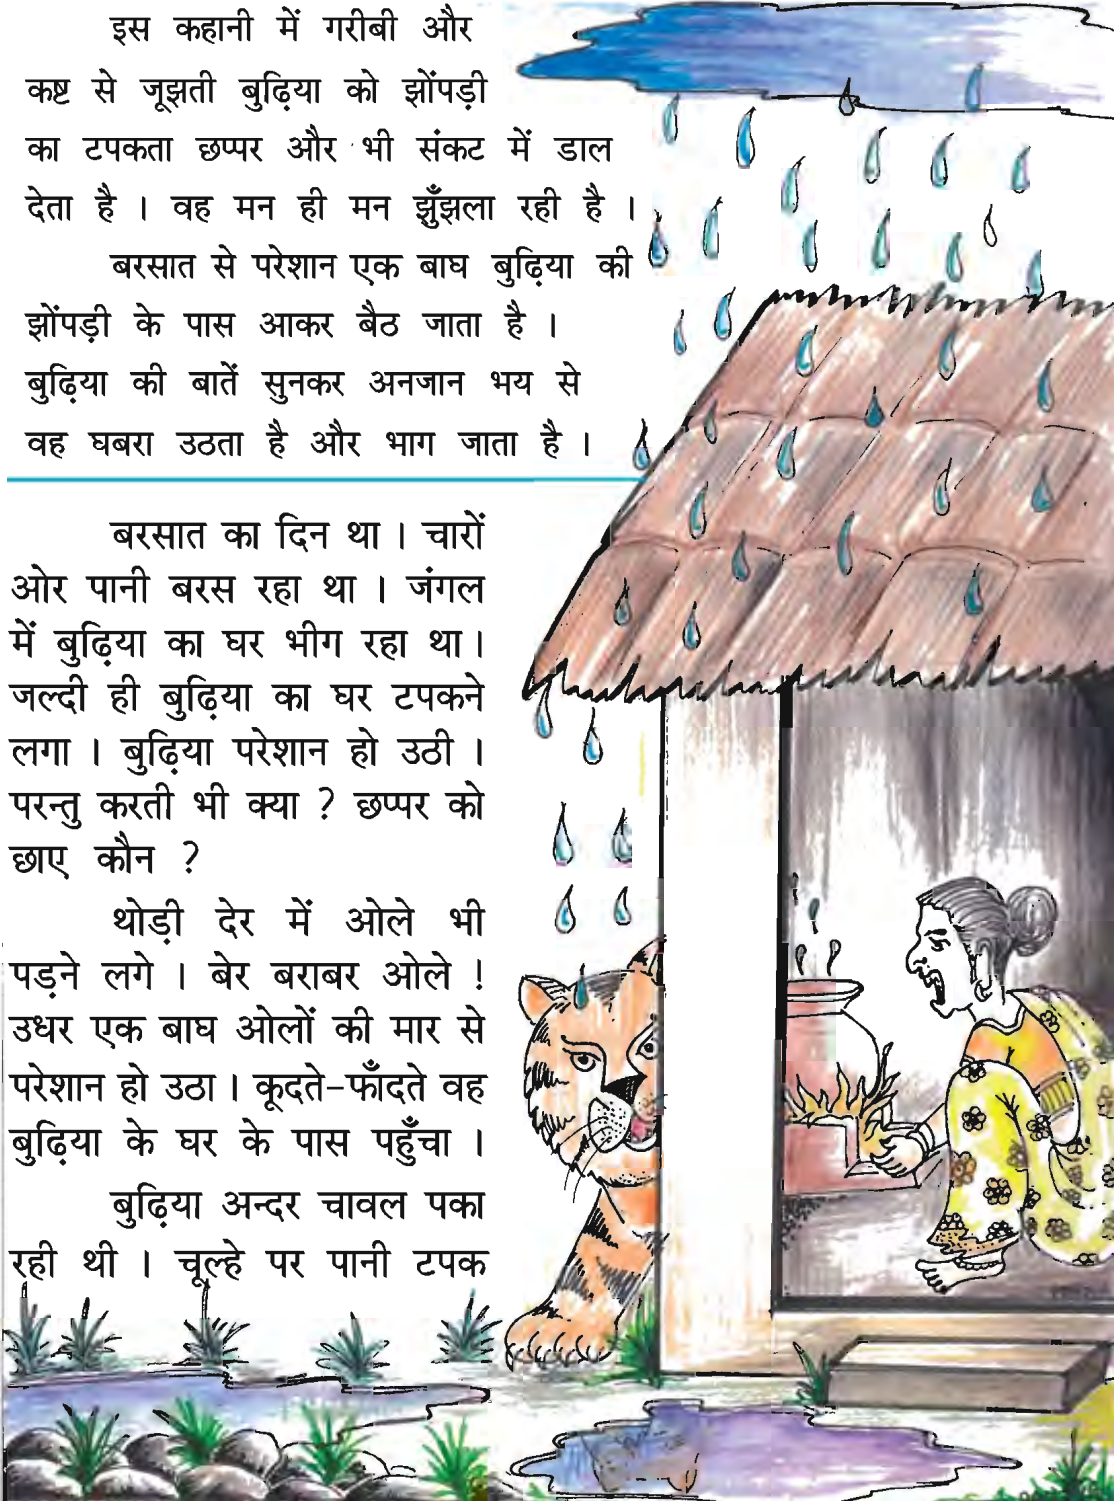 इस कहानी में गरीबी और
कष्ट से जूझती बुढ़िया को झोंपड़ी
का टपकता छप्पर और भी संकट में डाल
देता है । वह मन ही मन झुँझला रही है ।
बरसात से परेशान एक बाघ बुढ़िया की
झोंपड़ी के पास आकर बैठ जाता है ।
बुढ़िया की बातें सुनकर अनजान भय से
वह घबरा उठता है और भाग जाता है ।
बरसात का दिन था । चारों
ओर पानी बरस रहा था । जंगल
में बुढ़िया का घर भीग रहा था।
जल्दी ही बुढ़िया का घर टपकने
लगा । बुढ़िया परेशान हो उठी ।
परन्तु करती भी क्या ? छप्पर को
छाए कौन ?
थोड़ी देर में ओले भी
पड़ने लगे । बेर बराबर ओले !
उधर एक बाघ ओलों की मार से
परेशान हो उठा । कूदते-फाँदते वह
बुढ़िया के घर के पास पहुँचा ।
बुढ़िया अन्दर चावल पका
रही थी । चूल्हे पर पानी टपक